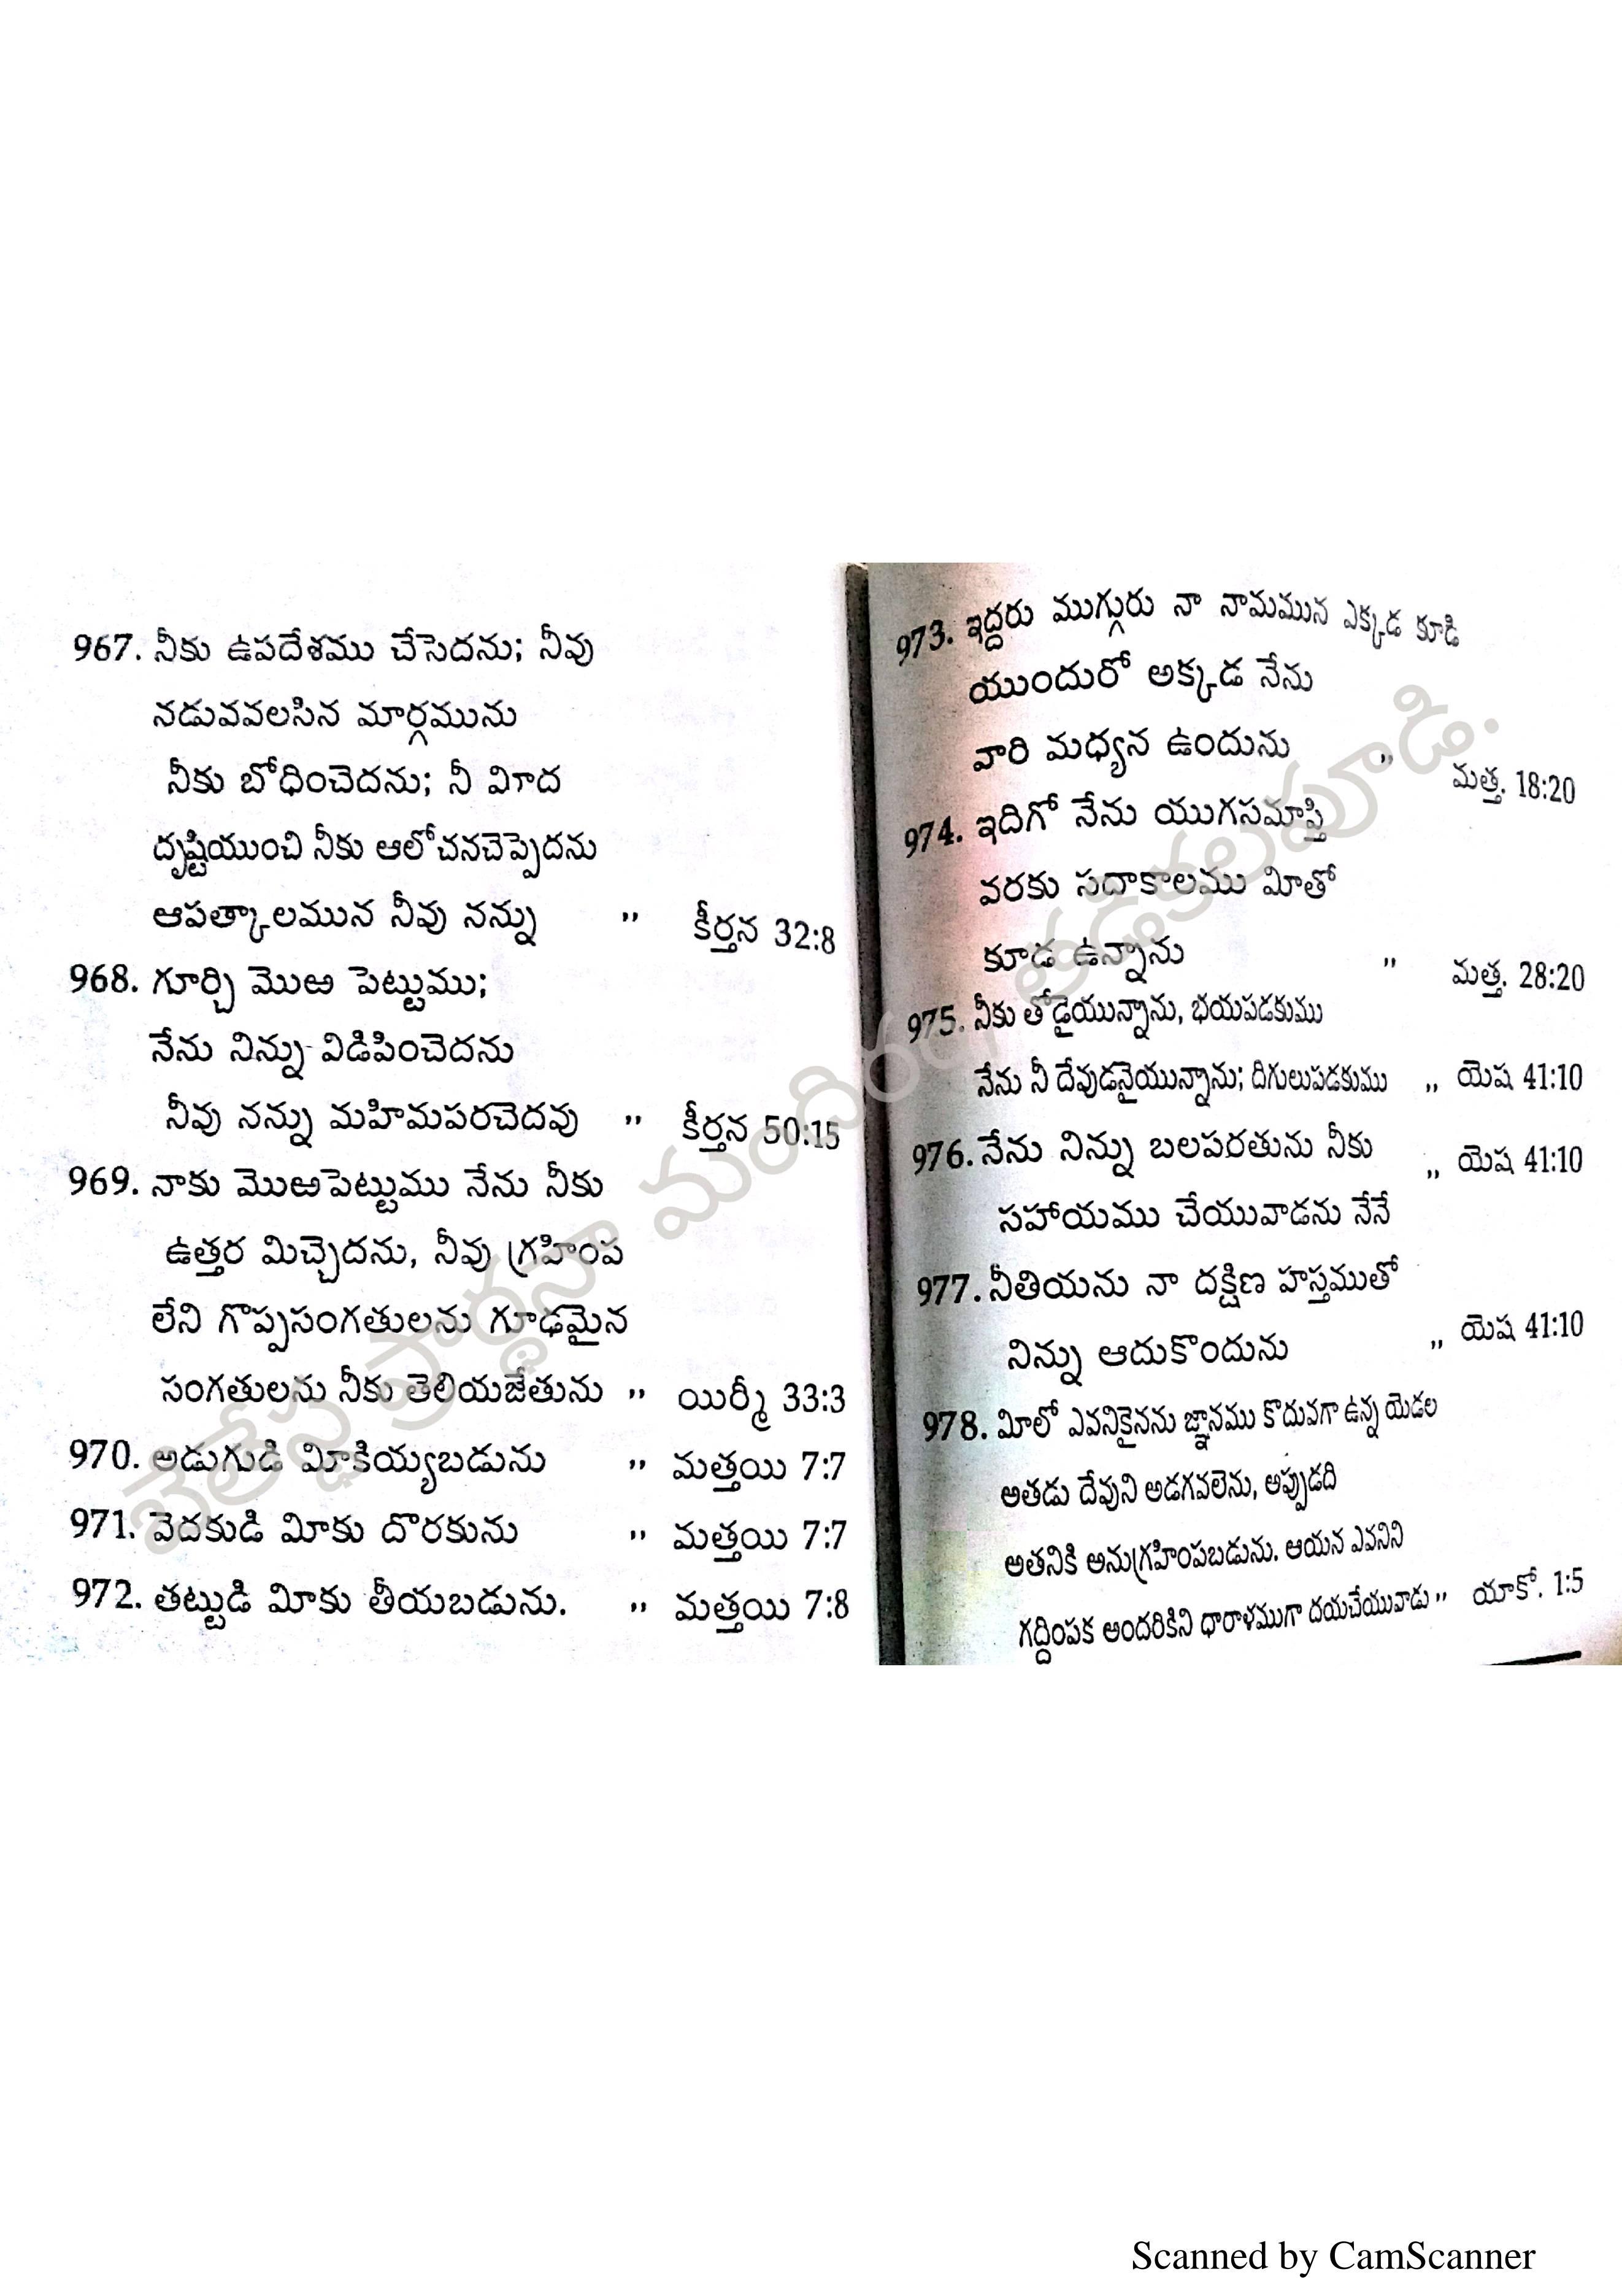 967. నీకు ఉపదేశము చేసెదను; నీవు
నడువవలసిన మార్గమును
నీకు బోధించెదను; నీ మీద
దృష్టియుంచి నీకు ఆలోచనచెప్పెదను
ఆపత్కాలమున నీవు నన్ను " కీర్తన 32:8
968. గూర్చి మొఱ పెట్టుము;
నేను నిన్ను విడిపించెదను
నీవు నన్ను మహిమపరచెదవు " కీర్తన 50:15
969. నాకు మొఱపెట్టుము నేను నీకు
ఉత్తర మిచ్చెదను, నీవు గ్రహింప
లేని గొప్పసంగతులను గూఢమైన
సంగతులను నీకు తెలియజేతును " యిర్మీ 33:3
970. అడుగుడి మీకియ్యబడును " మత్తయి 7:7
971. వెదకుడి మీకు దొరకును " మత్తయి 7:7
972. తట్టుడి మీకు తీయబడును. " మత్తయి 7:8
973. ఇద్దరు ముగ్గురు నా నామమున ఎక్కడ కూడి
యుందురో అక్కడ నేను
వారి మధ్యన ఉందును " మత్త. 18:20
974. ఇదిగో నేను యుగసమాప్తి
వరకు సదాకాలము మీతో
కూడ ఉన్నాను " మత్త. 28:20
975. నీకు తోడైయున్నాను, భయపడకుము
నేను నీ దేవుడనైయున్నాను; దిగులుపడకుము " యెష 41:10
976. నేను నిన్ను బలపరతును నీకు " యెష 41:10
సహాయము చేయువాడను నేనే
977. నీతియను నా దక్షిణ హస్తముతో
నిన్ను ఆదుకొందును " యెష 41:10
978. మీలో ఎవనికైనను జ్ఞానము కొదువగా ఉన్న యెడల
అతడు దేవుని అడగవలెను, అప్పుడది
అతనికి అనుగ్రహింపబడును. ఆయన ఎవనిని
గద్దింపక అందరికిని ధారాళముగా దయచేయువాడు " యాకో. 1:5
బెతేస్ధ ప్రార్థనా మందిరం తడికలపూడి.
Scanned by CamScanner